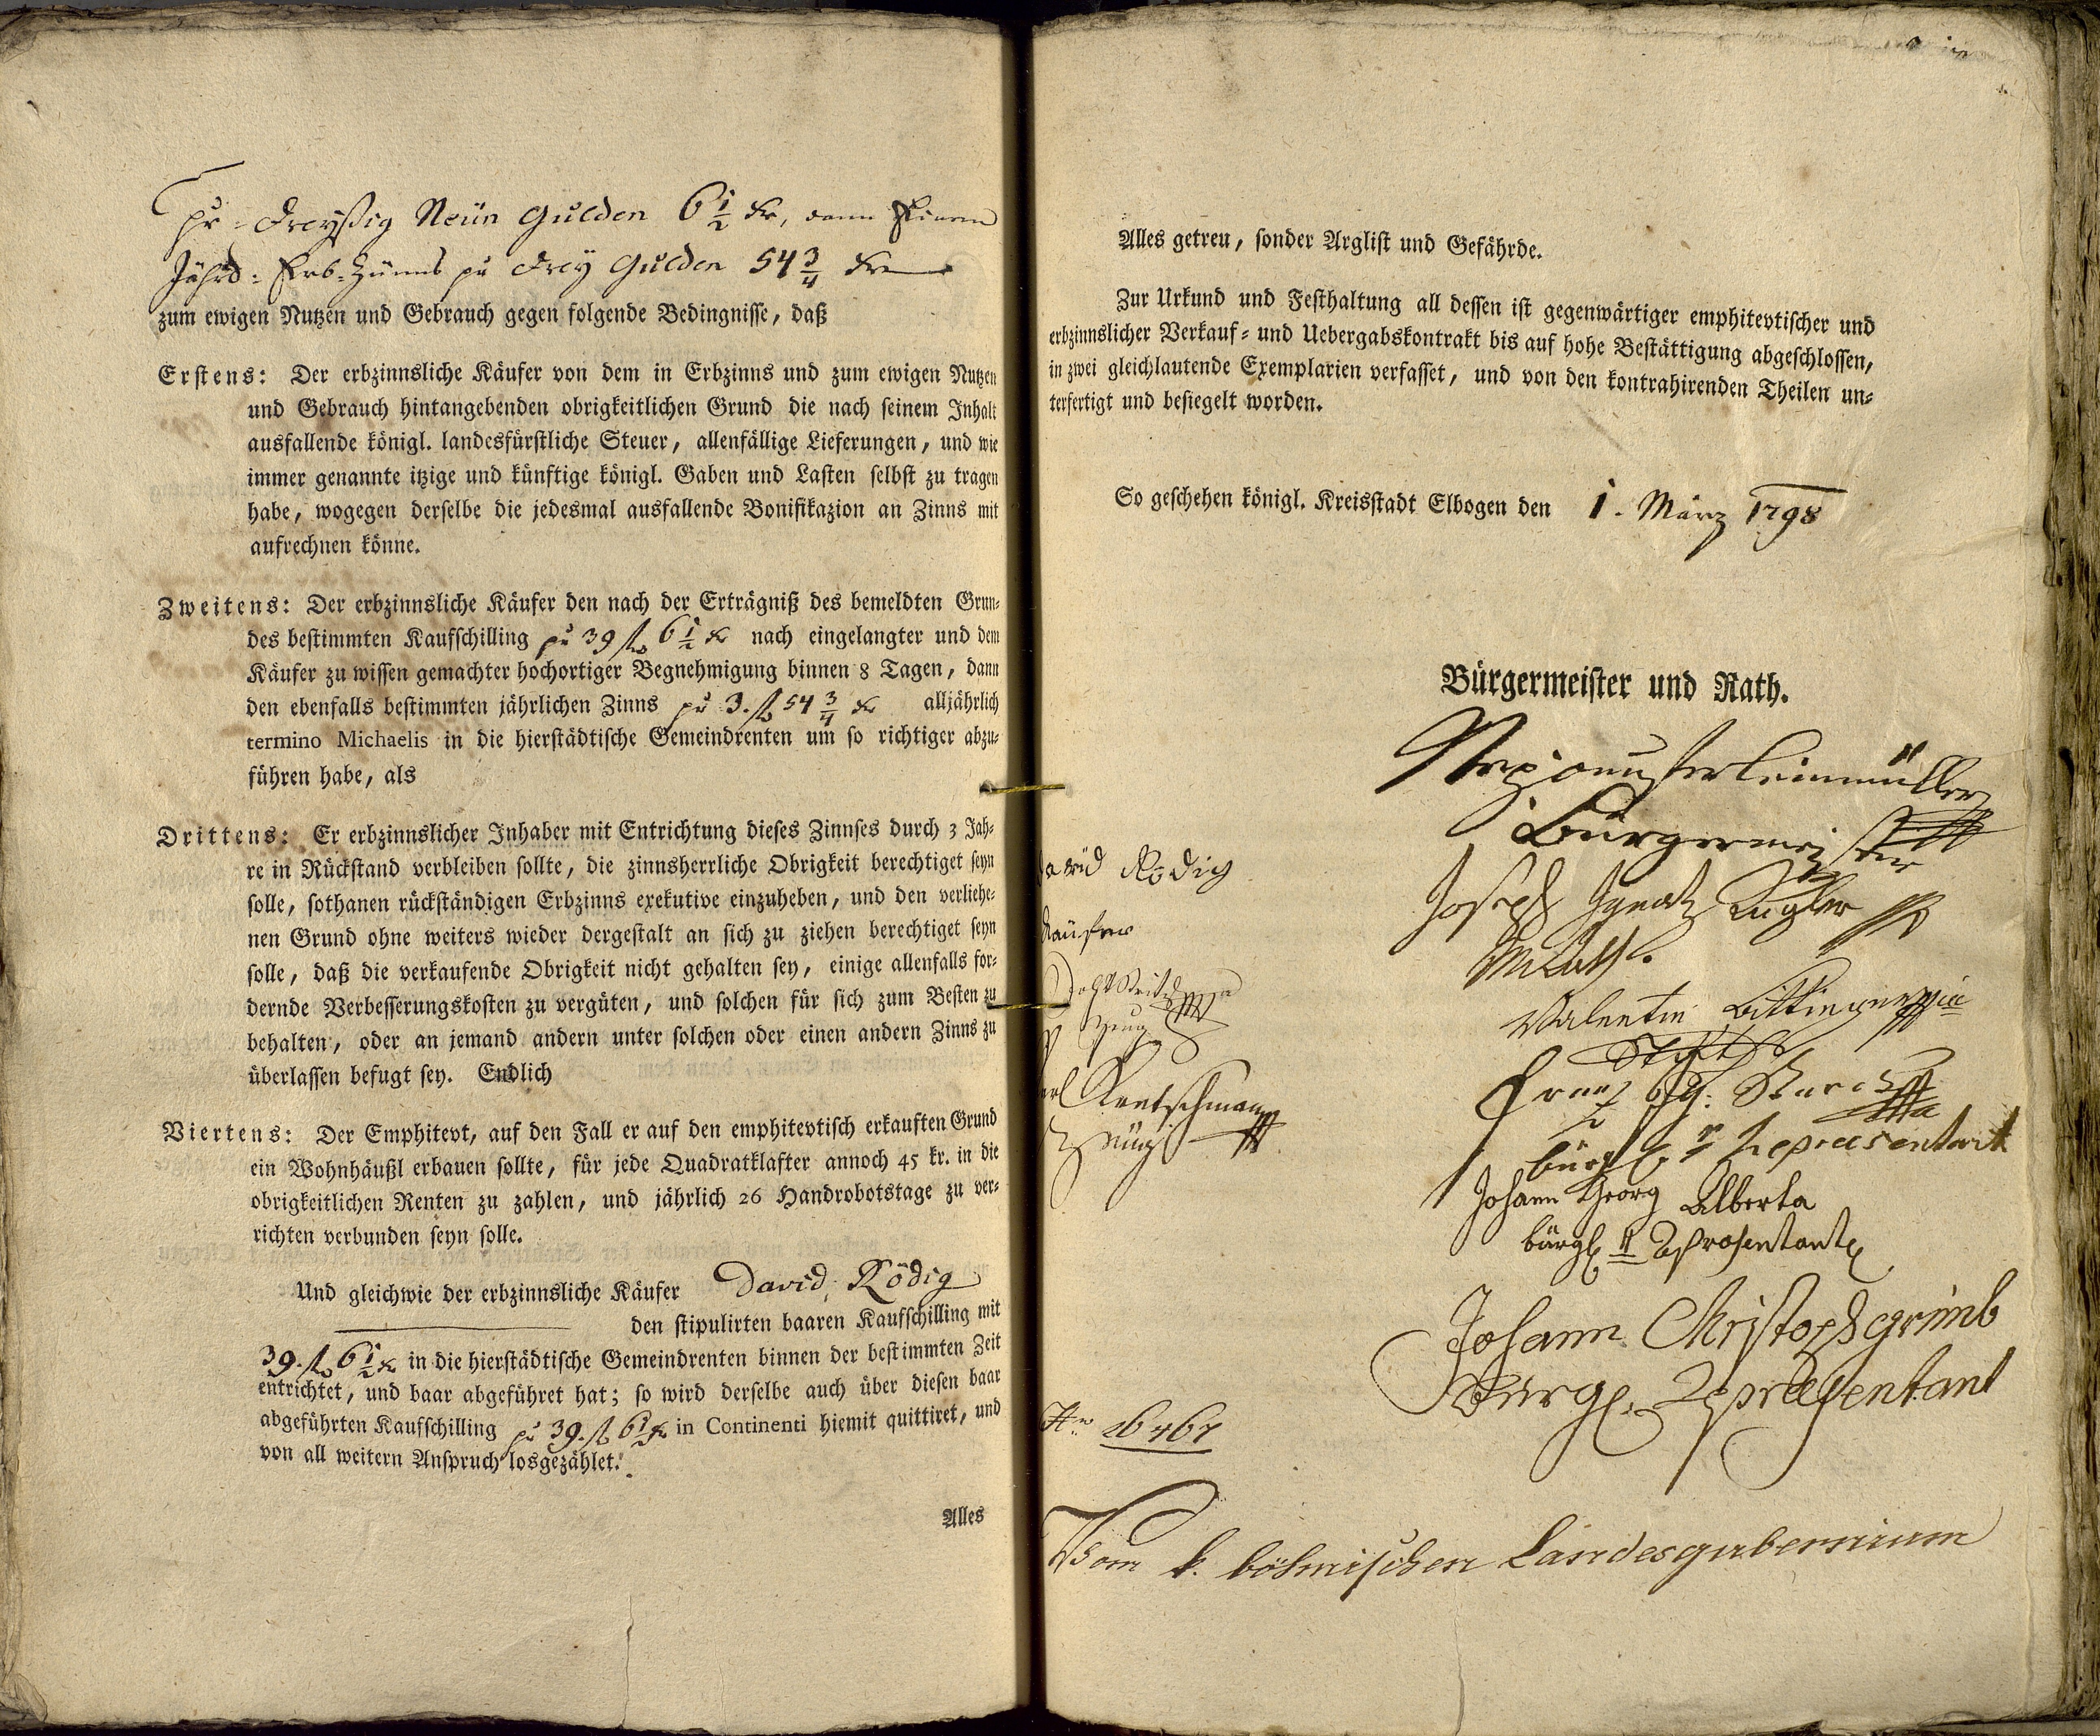 pr: Dreyßig Neün Gulden 6 1/2 Kr, dann Einem
Jährl: Erb-Zünns pr Drey Gulden 54 3/4 Kr
zum ewigen Nutzen und Gebrauch gegen folgende Bedingnisse, daß
Erstens: Der erbzinnsliche Käufer von dem in Erbzinns und zum ewigen Nutzen
und Gebrauch hintangebenden obrigkeitlichen Grund die nach seinem Inhalt
ausfallende königl. landesfürstliche Steuer, allenfällige Lieferungen, und wie
immer genannte itzige und künftige königl. Gaben und Lasten selbst zu tragen
habe, wogegen derselbe die jedesmal ausfallende Bonifikazion an Zinns mit
aufrechnen könne.
Zweitens: Der erbzinnsliche Käufer den nach der Erträgniß des bemeldten Grun-
des bestimmten Kaufschilling pr 39 fl 6 1/2 Kr nach eingelangter und dem
Käufer zu wissen gemachter hochortiger Begnehmigung binnen 8 Tagen, dann
den ebenfalls bestimmten jährlichen Zinns pr 3. fl 54 3/4 Kr alljährlich
termino Michaelis in die hierstädtische Gemeindrenten um so richtiger abzu-
führen habe, als
Drittens: Er erbzinnslicher Inhaber mit Entrichtung dieses Zinnses durch 3 Jah-
re in Rückstand verbleiben sollte, die zinnsherrliche Obrigkeit berechtiget seyn
solle, sothanen rückständigen Erbzinns exekutive einzuheben, und den verliehe-
nen Grund ohne weiters wieder dergestalt an sich zu ziehen berechtiget seyn
solle, daß die verkaufende Obrigkeit nicht gehalten sey, einige allenfalls for-
dernde Verbesserungskosten zu vergüten, und solchen für sich zum Besten zu
behalten, oder an jemand andern unter solchen oder einen andern Zinns zu
überlassen befugt sey. Endlich
Viertens: Der Emphitevt, auf den Fall er auf den emphitevtisch erkauften Grund
ein Wohnhäußl erbauen sollte, für jede Quadratklafter annoch 45 kr. in die
obrigkeitlichen Renten zu zahlen, und jährlich 26 Handrobotstage zu ver-
richten verbunden seyn solle.
Und gleichwie der erbzinnsliche Käufer David Rödig
den stipulirten baaren Kaufschilling mit
39. fl 6 1/2 Kr in die hierstädtische Gemeindrenten binnen der bestimmten Zeit
entrichtet, und baar abgeführet hat; so wird derselbe auch über diesen baar
abgeführten Kaufschilling pr 39. fl 6 1/2 Kr in Continenti hiemit quittiret, und
von all weitern Anspruch losgezählet.
Alles
Alles getreu, sonder Arglist und Gefährde.
Zur Urkund und Festhaltung all dessen ist gegenwärtiger emphitevtischer und
erbzinnslicher Verkauf- und Uebergabskontrakt bis auf hohe Bestättigung abgeschlossen,
in zwei gleichlautende Exemplarien verfasset, und von den kontrahirenden Theilen un-
terfertigt und besiegelt worden.
So geschehen königl. Kreisstadt Elbogen den 1. März 1798
Bürgermeister und Rath.
Bürgermeister
David Rödig
Joseph Ignatz Kugler
Käufer
Valentin
Zeug
Franz
Kretschmann
Zeüg
bürgl. r Repraesentant
Johann Georg Alberta
bürgl r Represantant
Johann Christoph grimb
Bürgl. Repraesentant
Vom k. böhmischen Landesgubernium